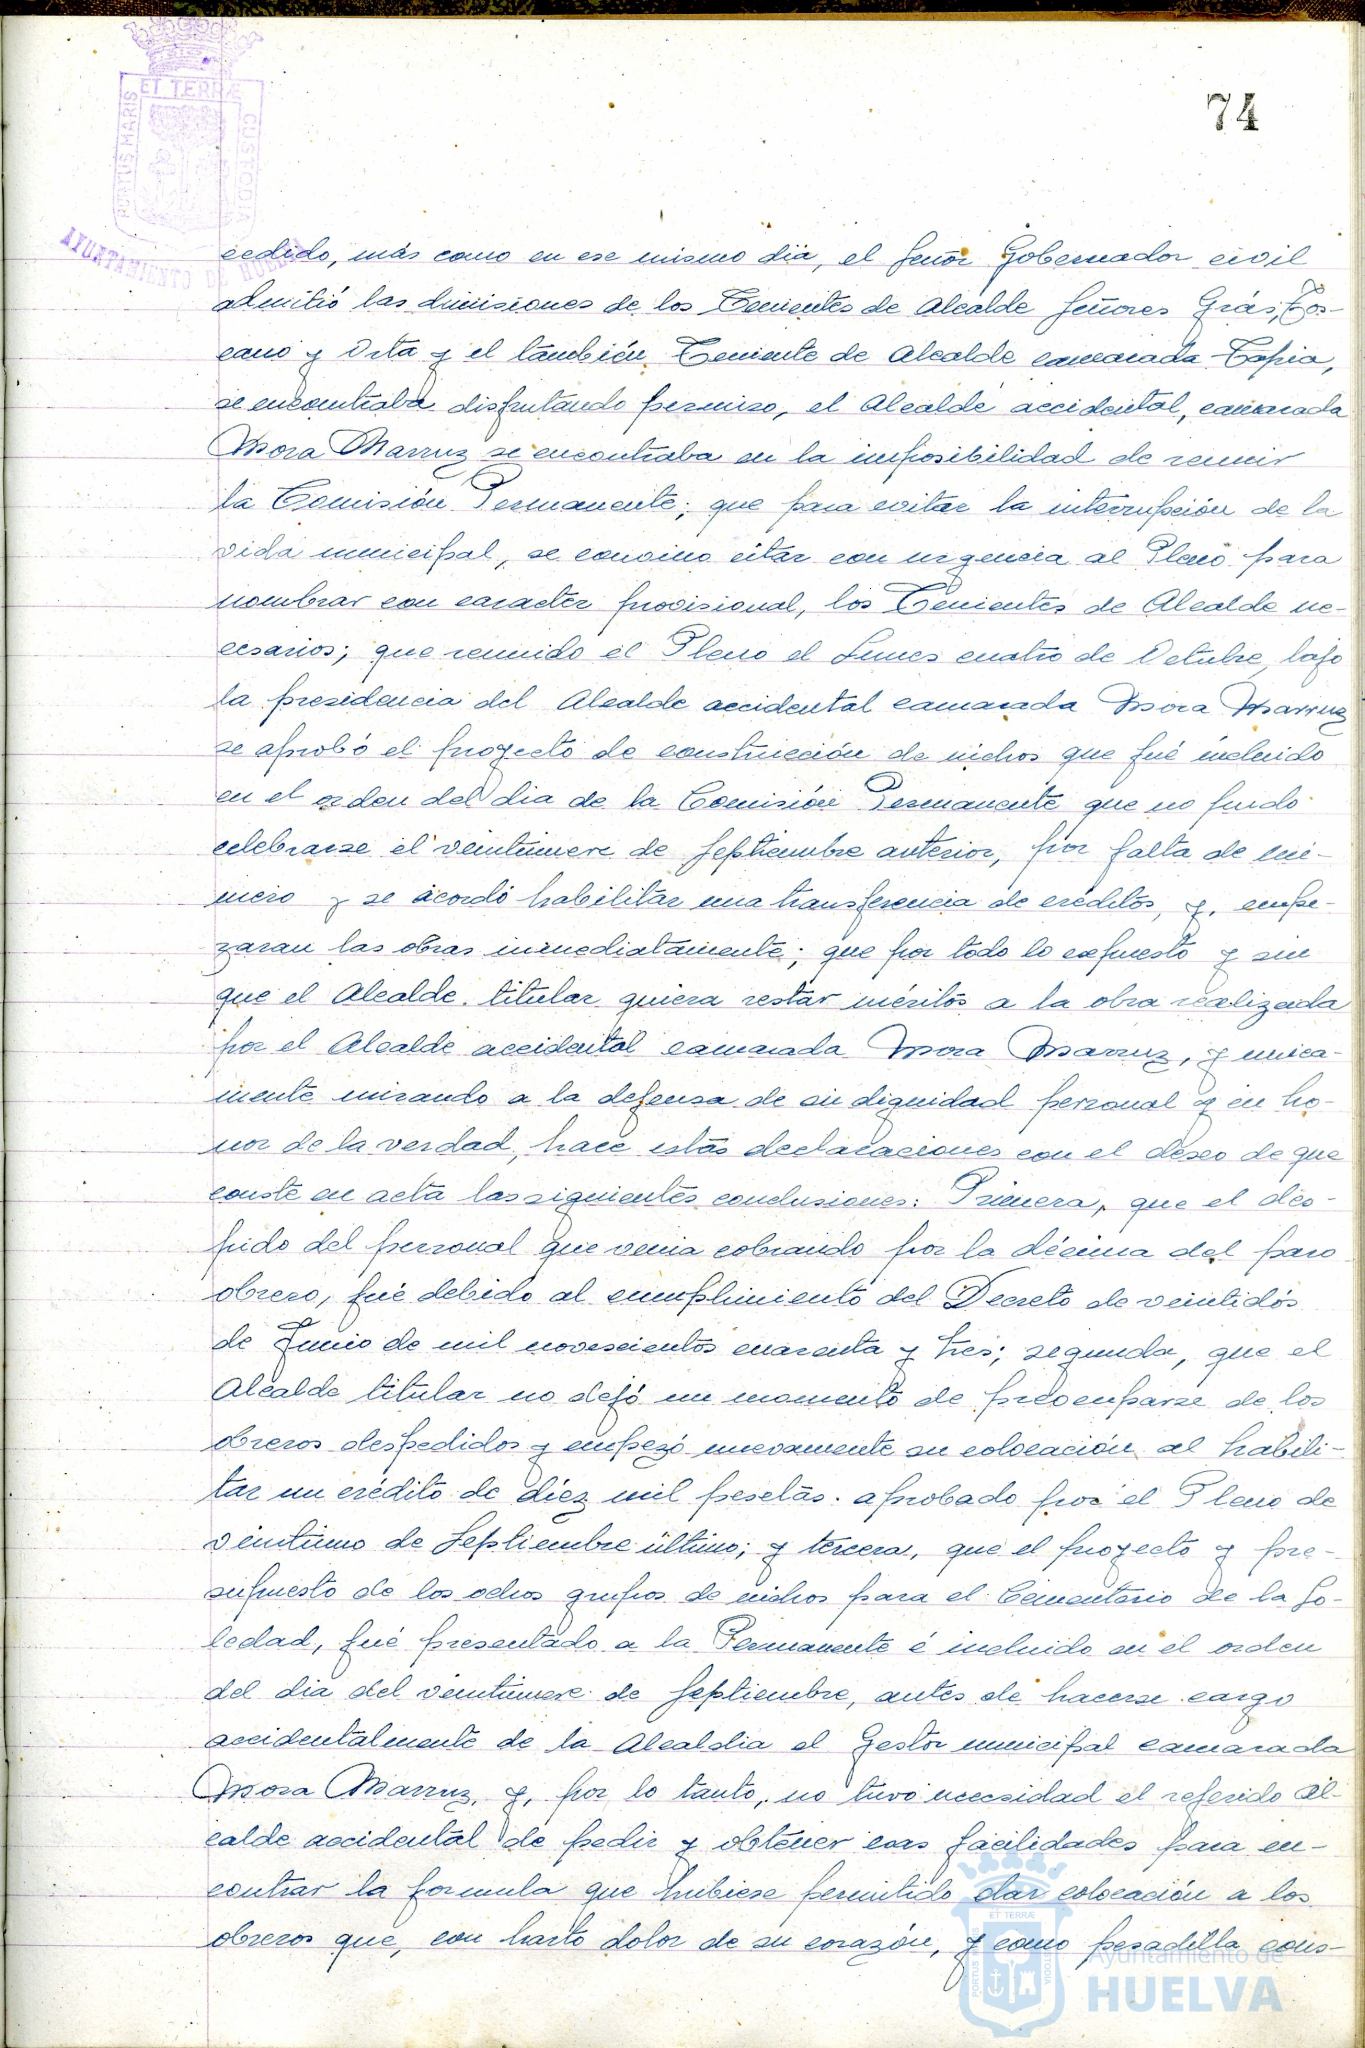 ET TERRÆ
PORTUS MARIS
CUSTODIA
AYUNTAMIENTO DE HUELVA
74
cedido, más como en ese mismo dia, el Señor Gobernador civil
admitió las dimisiones de los Tenientes de Alcalde Señores Grás, Tos-
cano y Orta y el también Teniente de Alcalde camarada Tapia,
se encontraba disfrutando permiso, el Alcalde accidental, camarada
Mora Marruz se encontraba en la imposibilidad de reunir
la Comisión Permanente; que para evitar la interrupción de la
vida municipal, se convino citar con urgencia al Pleno para
nombrar con caracter provisional, los Tenientes de Alcalde ne-
cesarios; que reunido el Pleno el Lunes cuatro de Octubre, bajo
la presidencia del Alcalde accidental camarada Mora Marruz
se aprobó el proyecto de construcción de nichos que fué incluido
en el orden del dia de la Comisión Permanente que no pudo
celebrarse el veintinueve de Septiembre anterior, por falta de nú-
mero y se acordó habilitar una transferencia de créditos, y, empe-
zaran las obras inmediatamente; que por todo lo expuesto y sin
que el Alcalde titular quiera restar méritos a la obra realizada
por el Alcalde accidental camarada Mora Marruz, y unica-
mente mirando a la defensa de su dignidad personal y en ho-
nor de la verdad, hace estas declaraciones con el deseo de que
conste en acta las siguientes conclusiones: Primera, que el des-
pido del personal que venia cobrando por la décima del paro
obrero, fué debido al cumplimiento del Decreto de veintidós
de Junio de mil novescientos cuarenta y tres; segunda, que el
Alcalde titular no dejó un momento de preocuparse de los
obreros despedidos y empezó nuevamente su colocación al habili-
tar un crédito de diez mil pesetas aprobado por el Pleno de
veintiuno de Septiembre último; y tercera, que el proyecto y pre-
supuesto de los ochos grupos de nichos para el Cementerio de la So-
ledad, fué presentado a la Permanente é incluido en el orden
del dia del veintinueve de Septiembre, antes de hacerse cargo
accidentalmente de la Alcaldia el Gestor municipal camarada
Mora Marruz, y, por lo tanto, no tuvo necesidad el referido Al-
calde accidental de pedir y obtener esas facilidades para en-
contrar la formula que hubiese permitido dar colocación a los
obreros que, con harto dolor de su corazón, y como pesadilla cons-
ET TERRÆ
PORTUS MARIS
CUSTODIA
Ayuntamiento de
HUELVA